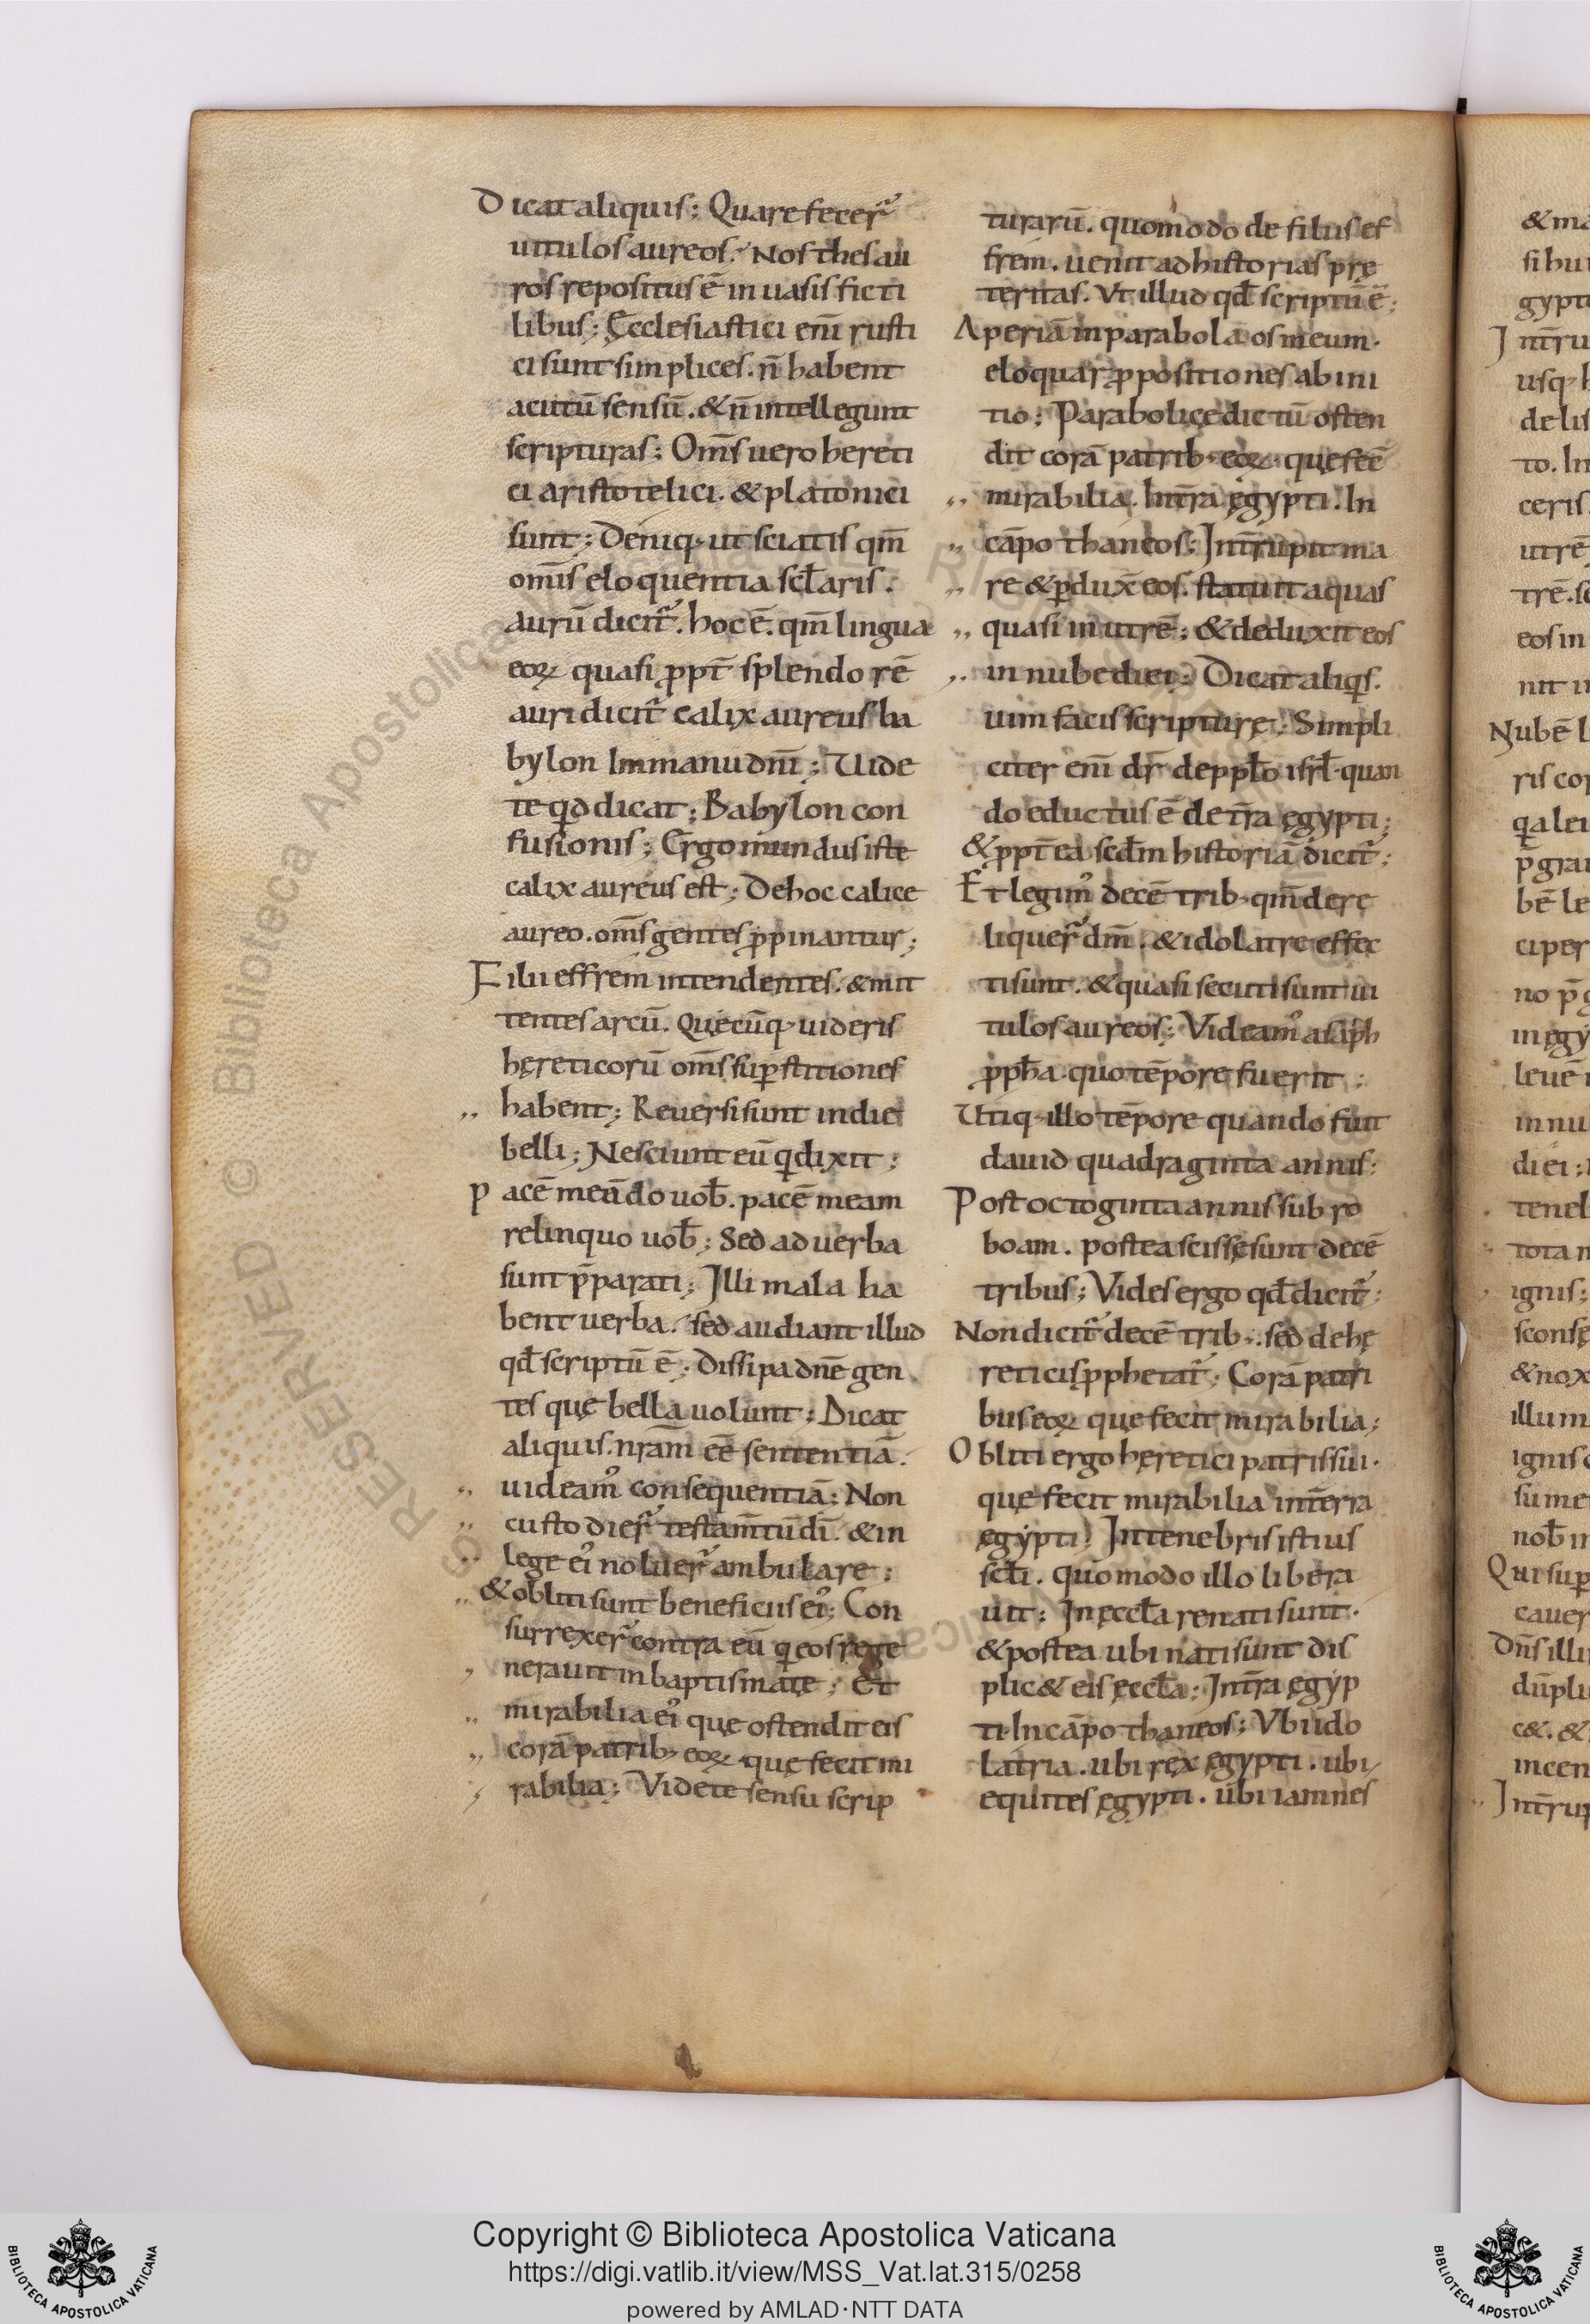 Dicat aliquis; Quare fecer̄
uitulos aureos. Nos thesau
ros repositus ē in uasis ficti
libus; Ęcclesiastici eni̅ rusti
ci sunt simplices. n̅ habent
acutū sensū. & n̅ intellegunt
scripturas; Om̅s uero hereti
ci aristotelici. & platonici
sunt; Deniq; ut sciatis qm̅
omīs eloquentia scl̅aris.
aurū dicit̄. hoc ē. qm̅ lingua
eoꝝ quasi ꝓpt̅ splendorē
auri dicit̄ calix aureus ba
bylon In manu dn̅i; Uide
te qd dicat; Babylon con
fusionis; Ergo mundus iste
calix aureus est; De hoc calice
aureo. om̅s gentes ꝓpinantur;
Filii effrem intendentes. & mit
tentes arcū. Quęcūq; uideris
hęreticorū om̅s suꝑstitiones
habent; Reuersi sunt in die
belli; Nesciunt eū qd dixit;
Pacē meā do uob̅. pacē meam
relinquo uob̅; Sed ad uerba
sunt p̅parati; Illi mala ha
bent uerba. sed audiant illud
qd̅ scriptū ē; Dissipa dn̅e gen
tes quę bella uolunt; Dicat
aliquis. nr̅am ēē sententiā.
uideam᾿ consequentiā; Non
custodier̄ testam̅tū dī. & in
lege ei᾿ noluer̄ ambulare;
& obliti sunt beneficiis ei᾿; Con
surrexer̄ contra eū q̣ eos rege
nerauit in baptismate; Et
mirabilia ei᾿ quę ostendit eis
corā patrib; eoꝝ quę fecit mi
rabilia; Videte sensu scrip
turarū. quomodo de filiis ef
frem. uenit ad historias prę
teritas. Vt illud qd̅ scriptū ē;
Aperiā in parabola os meum.
eloquar ꝓpositiones ab ini
tio; Parabolicę dictū osten
dit corā patrib; eoꝝ quę fec̅
mirabilia. In t̅ra ęgypti. In
cāpo thaneos; Int̅rupit ma
re & ꝑdux̅ eos. statuit aquas
quasi in utrē; & deduxit eos
in nube diei; Dicat aliqs.
uim facis scripturę; Simpli
citer eni̅ dr̅ de ppl̅o isrl̅. quan
do eductus ē de t̅ra ęgypti;
& ꝓpt̅ea scd̅m historiā dicit̄;
Et legim᾿ decē trib; qm̅ dere
liquer̄ dm̅. & idolatre effec
ti sunt. & quasi secuti sunt ui
tulos aureos; Videam᾿ asaph
ꝓph̅a quo tēpore fuerit;
Utiq; illo tēpore quando fuit
dauid quadraginta annis;
Post octoginta annis sub ro
boam. postea scissę sunt decē
tribus; Vides ergo qd̅ dicit̄;
Non dicit̄ decē trib; sed de hę
reticis ꝓphetat̄; Corā patri
bus eoꝝ quę fecit mirabilia;
Obliti ergo hęretici patris sui.
quę fecit mirabilia in t̅erra
ęgypti; In tenebris istius
scl̅i. quomodo illo libera
uit; In ęccl̅a renati sunt.
& postea ubi nati sunt dis
plic& eis ęccl̅a; In t̅ra ęgyp
ti. In cāpo thaneos; Vb iido
latria. ubi rex ęgypti. ubi
equites ęgypti. ubi iamnes
Copyright © Biblioteca Apostolica Vaticana
https://digi.vatlib.it/view/MSS_Vat.lat.315/0258
powered by AMLAD·NTT DATA